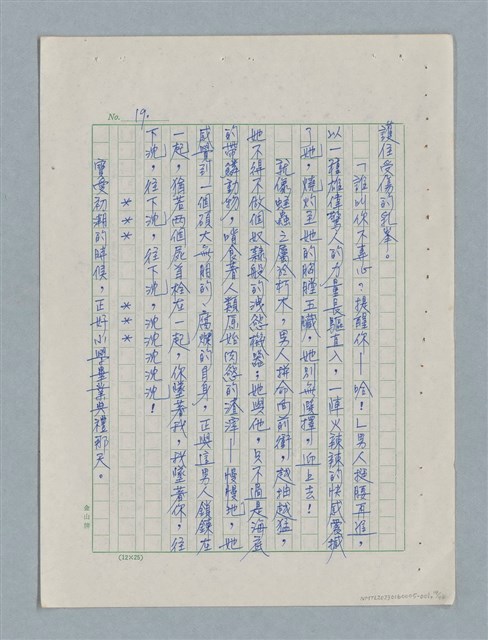 No. 19.
護住受傷的乳峯。
「誰叫你不專心?提醒你──哈!」男人挺腰再進,
以一種雄偉驚人的力量長驅直入,一陣火辣辣的快感震撼
了她,燒灼至她的胸膛五臟,她別無選擇,迎上去!
就像蛀蟲之屬於朽木,男人拼命向前衝,越抽越猛,
她不得不做個奴隸般的洩慾機器;她與他,只不過是海底
的帶鱗動物,啃食著人類原始肉慾的渣滓──慢慢地,她
感覺到一個碩大無朋的、腐爛的自身,正與這男人鎖鍊在
一起,像若兩個屍首栓在一起,你墜著我,我墜著你,往
下沈,往下沈,往下沈,沈沈沈沈沈!
*** ***
寶愛初潮的時候,正好小學畢業典禮那天。
(12×25)